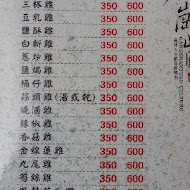 三杯雞 350 600
豆乳雞 350 600
鹽酥雞 350 600
白斬雞 350 600
蔥炒雞 350 600
鹽焗雞 350 600
桶仔雞 350 600
蒜頭雞(湯或乾) 350 600
燒酒雞 350 600
辣椒雞 350 600
香菇雞 350 600
金線蓮雞 350 600
九尾雞 350 600
筍絲雞 350 600
350 600